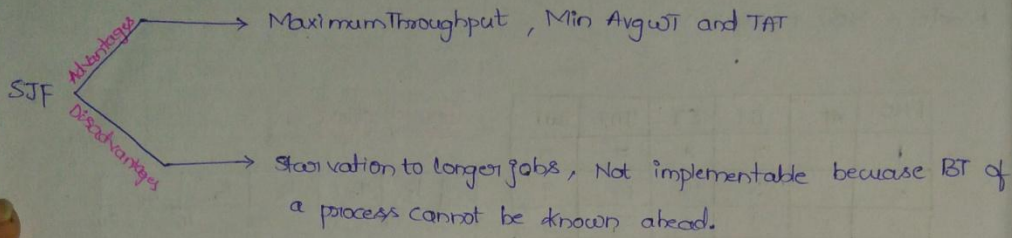 Advantages → MaximumThroughput , Min AvgWT and TAT
SJF
Disadvantages → Starvation to longer jobs, Not implementable becuase BT of
a process cannot be known ahead.